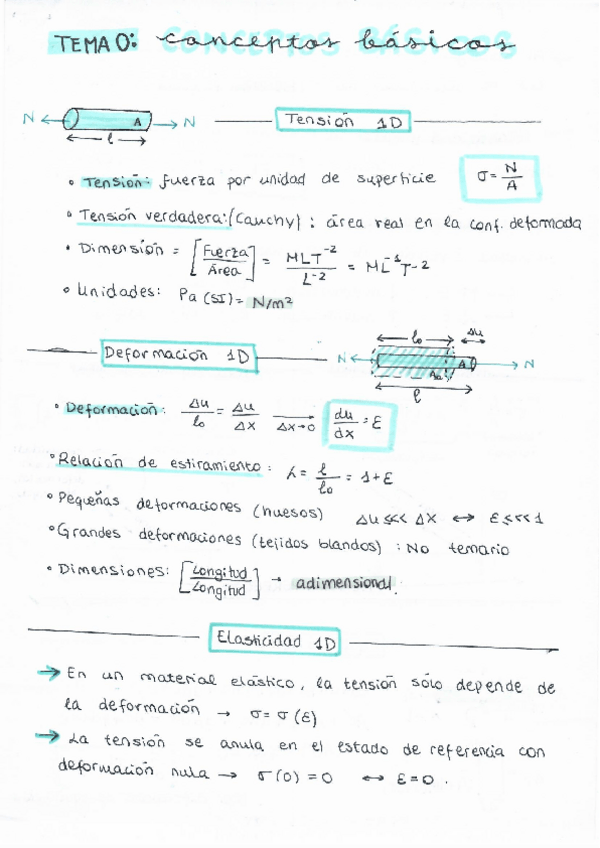 TEMA 0: conceptos básicos
CONCEPTOS BÁSICOS
N ← A → N
l
Tensión 1D
• Tensión: fuerza por unidad de superficie σ = N/A
• Tensión verdadera: (Cauchy) : área real en la conf. deformada
• Dimensión = [Fuerza/Área] = MLT⁻²/L⁻² = ML⁻¹T-2
• Unidades: Pa (SI) = N/m²
Deformación 1D
l₀ Δu
N ← A₀ A → N
l
• Deformación: Δu/l₀ = Δu/Δx → Δx→0 du/dx = ε
• Relación de estiramiento: λ = l/l₀ = 1+ε
• Pequeñas deformaciones (huesos) Δu <<< Δx ↔ ε <<< 1
• Grandes deformaciones (tejidos blandos) : No temario
• Dimensiones: [Longitud/Longitud] → adimensional.
Elasticidad 1D
→ En un material elástico, la tensión sólo depende de
la deformación → σ = σ(ε)
→ La tensión se anula en el estado de referencia con
deformación nula → σ(0) = 0 ↔ ε = 0.